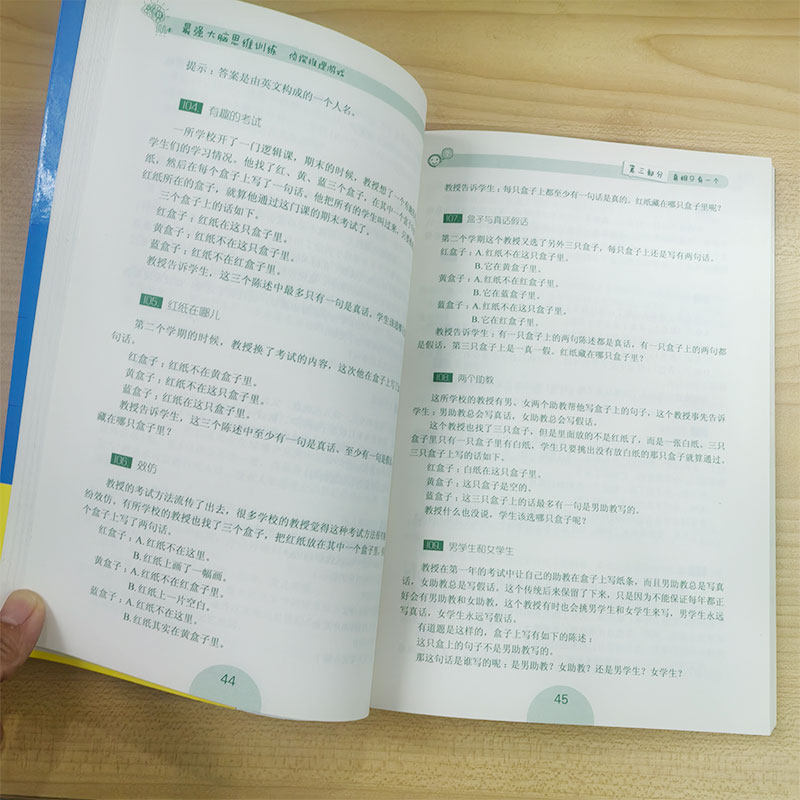 最强大脑思维训练 侦探推理游戏
提示：答案是由英文构成的一个人名。
104. 有趣的考试
一所学校开了一门逻辑课，期末的时候，教授想了一个有趣
学生们的学习情况。他找了红、黄、蓝三个盒子，在其中一个盒子
纸，然后在每个盒子上写了一句话。他把所有的学生叫过来，只要
红纸所在的盒子，就算他通过这门课的期末考试了。
三个盒子上的话如下。
红盒子：红纸在这只盒子里。
黄盒子：红纸不在这只盒子里。
蓝盒子：红纸不在红盒子里。
教授告诉学生，这三个陈述中最多只有一句是真话，学生该选哪
105. 红纸在哪儿
第二个学期的时候，教授换了考试的内容，这次他在盒子上写了
句话。
红盒子：红纸不在黄盒子里。
黄盒子：红纸不在这只盒子里。
蓝盒子：红纸在这只盒子里。
教授告诉学生，这三个陈述中至少有一句是真话、至少有一句是假
藏在哪只盒子里？
106. 效仿
教授的考试方法流传了出去，很多学校的教授觉得这种考试方法
纷效仿，有所学校的教授也找了三个盒子，把红纸放在其中一个盒子里，
个盒子上写了两句话。
红盒子：A. 红纸不在这里。
B. 红纸上画了一幅画。
黄盒子：A. 红纸不在红盒子里。
B. 红纸上一片空白。
蓝盒子：A. 红纸不在这里。
B. 红纸其实在黄盒子里。
44
第三部分 真相只有一个
教授告诉学生：每只盒子上都至少有一句话是真的。红纸藏在哪只盒子里呢？
107. 盒子与真话假话
第二个学期这个教授又选了另外三只盒子，每只盒子上还是写有两句话。
红盒子：A. 红纸不在这只盒子里。
B. 它在黄盒子里。
黄盒子：A. 红纸不在红盒子里。
B. 它在蓝盒子里。
蓝盒子：A. 红纸不在这只盒子里。
B. 它在红盒子里。
教授告诉学生：有一只盒子上的两句陈述都是真话，有一只盒子上的两句都
是假话，第三只盒子上是一真一假。红纸藏在哪只盒子里？
108. 两个助教
这所学校的教授有男、女两个助教帮他写盒子上的句子，这个教授事先告诉
学生：男助教总会写真话，女助教总会写假话。
这个教授也找了三只盒子，但是里面放的不是红纸了，而是一张白纸。三只
盒子里只有一只盒子里有白纸，学生只要挑出没有放白纸的那只盒子就算通过。
三只盒子上写的话如下。
红盒子：白纸在这只盒子里。
黄盒子：这只盒子是空的。
蓝盒子：这三只盒子上的话最多有一句是男助教写的。
教授什么也没说，学生该选哪只盒子呢？
109. 男学生和女学生
教授在第一年的考试中让自己的助教在盒子上写纸条，而且男助教总是写真
话，女助教总是写假话。这个传统后来保留了下来，只是因为不能保证每年都正
好会有男助教和女助教，这个教授有时也会挑男学生和女学生来写，男学生永远
写真话，女学生永远写假话。
有道题是这样的，盒子上写有如下的陈述：
这只盒上的句子不是男助教写的。
那这句话是谁写的呢：是男助教？女助教？还是男学生？女学生？
45